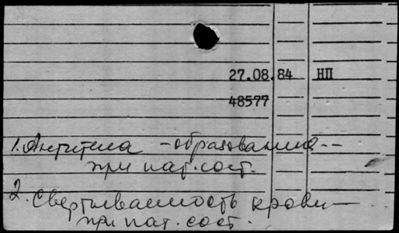 27.08.84 НП
48577
1. Антитела - образование --
при пат. сост.
2. Свертываемость крови —
при пат. сост.